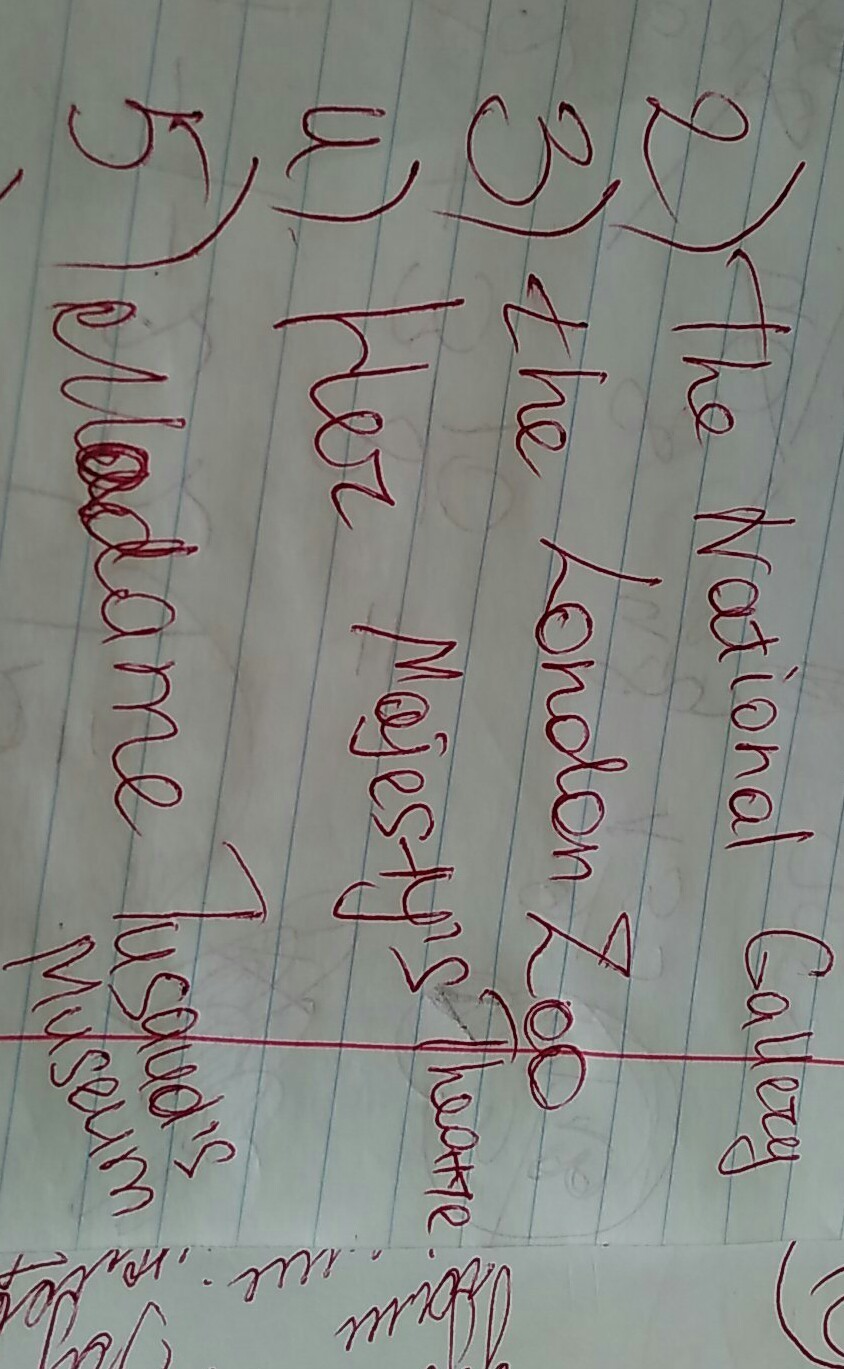 2) The National Gallery
3) the London Zoo
4) Her Majesty's Theatre
5) Madame Tusaud's
Museum